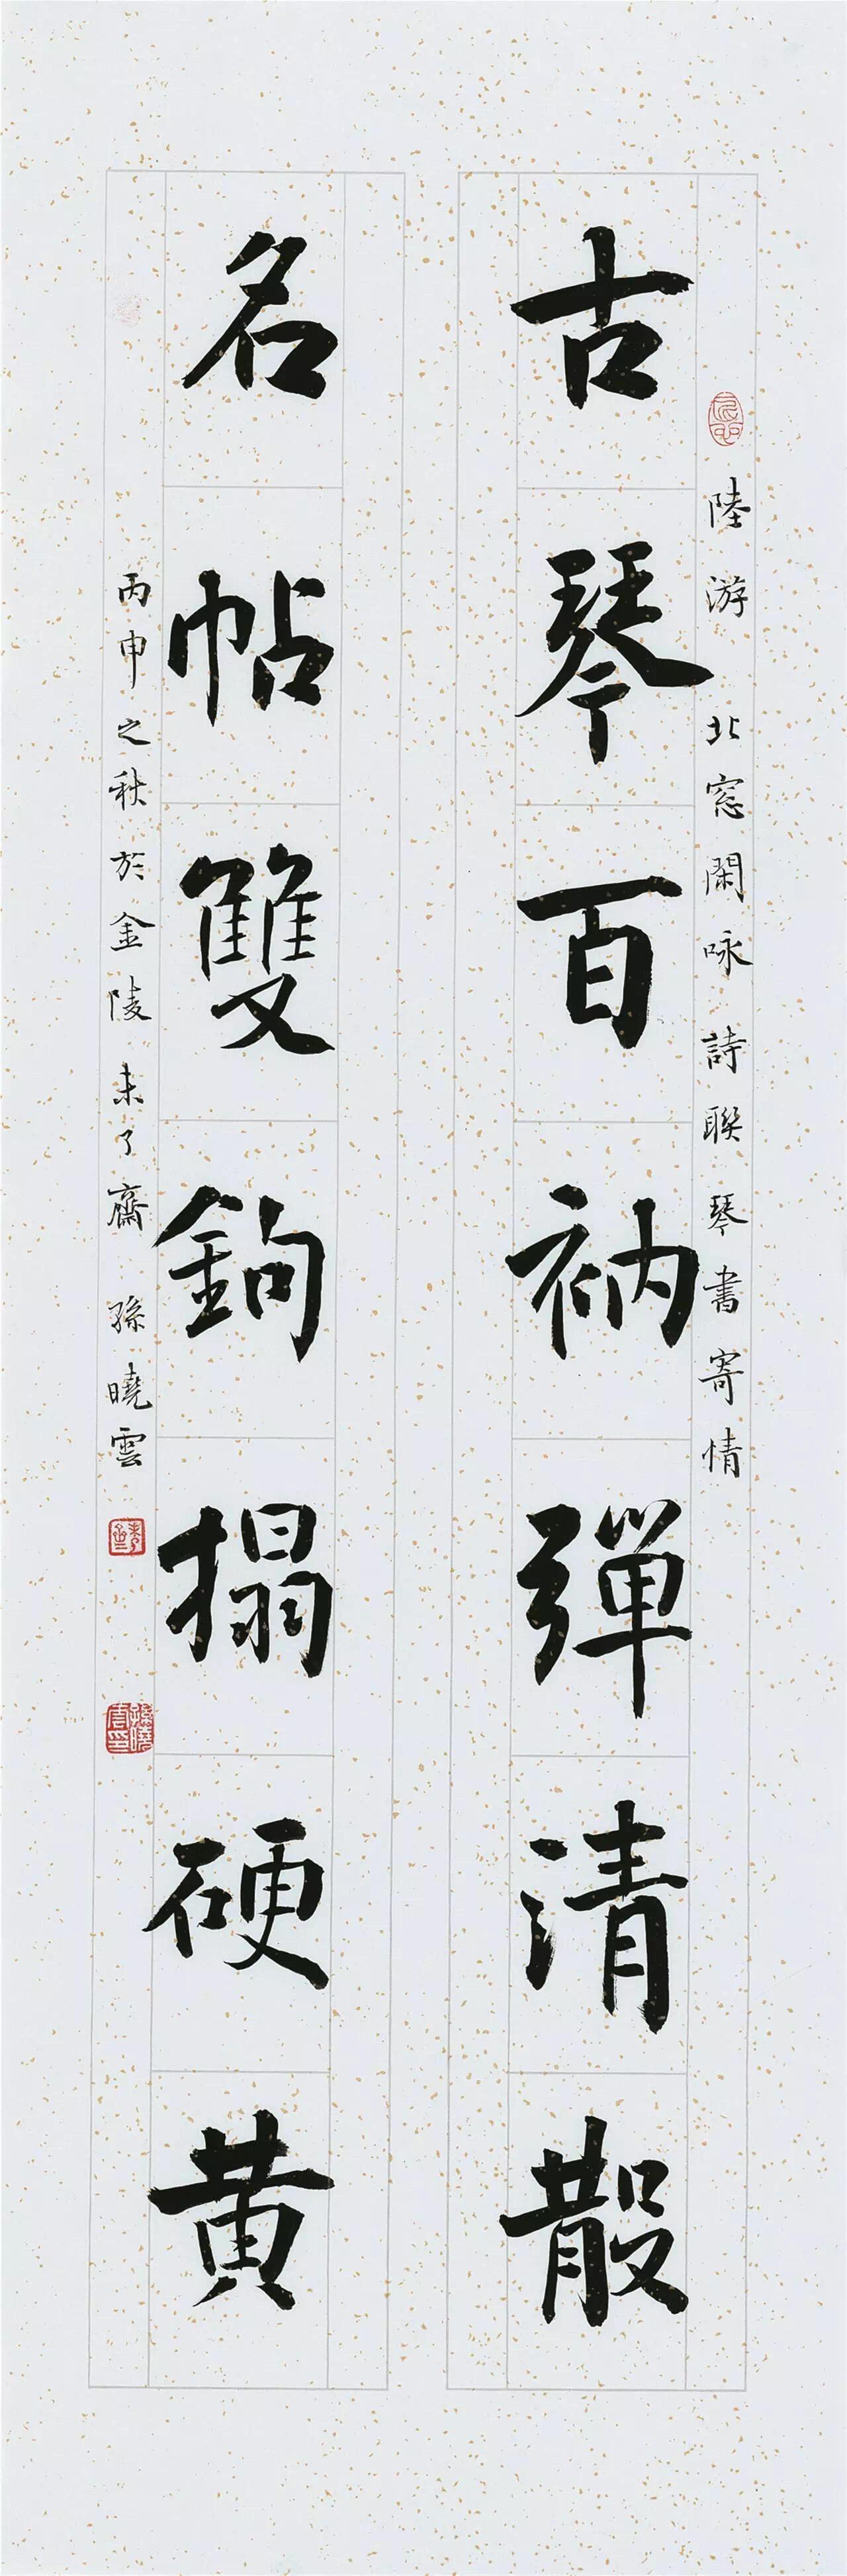 陸游北窓閑咏詩聯琴書寄情
古琴百衲彈清散
名帖雙鉤搨硬黄
丙申之秋於金陵未了齋孫曉雲
孫曉雲印